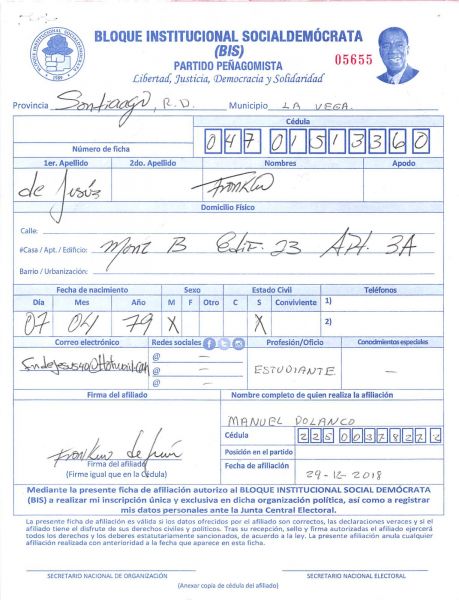 BLOQUE INSTITUCIONAL SOCIALDEMÓCRATA
(BIS)
PARTIDO PEÑAGOMISTA
05655
Libertad, Justicia, Democracia y Solidaridad
Provincia Santiago, R.D. Municipio LA VEGA.
Cédula
Número de ficha 04701513360
1er. Apellido 2do. Apellido Nombres Apodo
de Jesús Franklin
Domicilio Físico
Calle:
#Casa / Apt. / Edificio: Manz B Edif. 23 Apt. 3A
Barrio / Urbanización:
Fecha de nacimiento Sexo Estado Civil Teléfonos
Día Mes Año M F Otro C S Conviviente 1)
07 04 79 X X 2)
Correo electrónico Redes sociales Profesión/Oficio Conocimientos especiales
@ —
@ — ESTUDIANTE —
@ —
Firma del afiliado Nombre completo de quien realiza la afiliación
MANUEL POLANCO
Cédula
Franklin de Jesús
Posición en el partido
Firma del afiliado
(Firme igual que en la Cédula)
Fecha de afiliación
29-12-2018
Mediante la presente ficha de afiliación autorizo al BLOQUE INSTITUCIONAL SOCIAL DEMÓCRATA
(BIS) a realizar mi inscripción única y exclusiva en dicha organización política, así como a registrar
mis datos personales ante la Junta Central Electoral.
La presente ficha de afiliación es válida si los datos ofrecidos por el afiliado son correctos, las declaraciones veraces y si el
afiliado tiene el disfrute de sus derechos civiles y políticos. Tras su recepción, sello y firma autorizadas el afiliado ejercerá
todos los derechos y los deberes estatutariamente sancionados, de acuerdo a la ley. La presente afiliación anula cualquier
afiliación realizada con anterioridad a la fecha que aparece en esta ficha.
SECRETARIO NACIONAL DE ORGANIZACIÓN SECRETARIO NACIONAL ELECTORAL
(Anexar copia de cédula del afiliado)